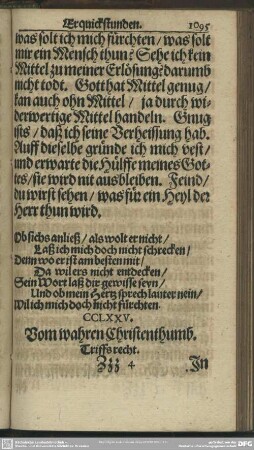 Erquickstunden. 1095
was solt ich mich fürchten / was solt
mir ein Mensch thun? Sehe ich kein
Mittel zu meiner Erlösung? darumb
nicht todt. Gott hat Mittel genug /
kan auch ohn Mittel / ja durch wi-
derwertige Mittel handeln. Gnug
ists / daß ich seine Verheissung hab.
Auff dieselbe gründe ich mich vest /
und erwarte die Hülffe meines Got-
tes / sie wird nit ausbleiben. Feind /
du wirst sehen / was für ein Heyl der
Herr thun wird.
Ob sichs anließ / als wolt er nicht /
Laß ich mich doch nicht schrecken /
Denn wo er ist am besten mit /
Da wil ers nicht entdecken /
Sein Wort laß dir gewisse seyn /
Und ob mein Hertz sprech lauter nein /
Wil ich mich doch nicht fürchten.
CCLXXV.
Vom wahren Christenthumb.
Triffs recht.
Zzz 4 In